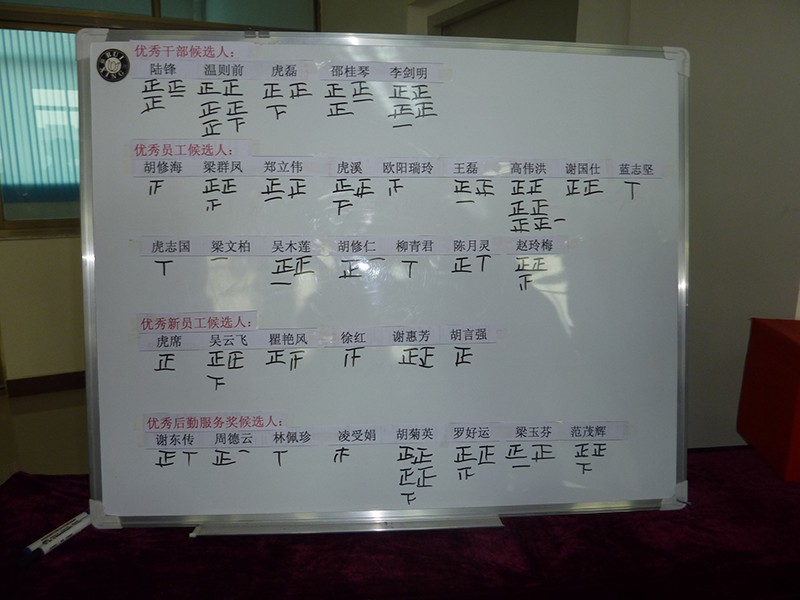 优秀干部候选人：
陆锋 温则前 虎磊 邵桂琴 李剑明
正正 正正 正正 正正 正正
正 正正 下 正 正正
正下 一
优秀员工候选人：
胡修海 梁群凤 郑立伟 虎溪 欧阳瑞玲 王磊 高伟洪 谢国仕 蓝志坚
正正 正正 正正 正正 正正 丅
一 下 一 正正
正正一
虎志国 梁文柏 吴木莲 胡修仁 柳青君 陈月灵 赵玲梅
丅 一 正正 正一 丅 正丅 正正
一
优秀新员工候选人：
虎席 吴云飞 瞿艳风 徐红 谢惠芳 胡言强
正 正正 正 正正 正
下
优秀后勤服务奖候选人：
谢东传 周德云 林佩珍 凌受娟 胡菊英 罗好运 梁玉芬 范茂辉
正丅 正一 丅 正正 正正 正正 正正
正正 一 下
下